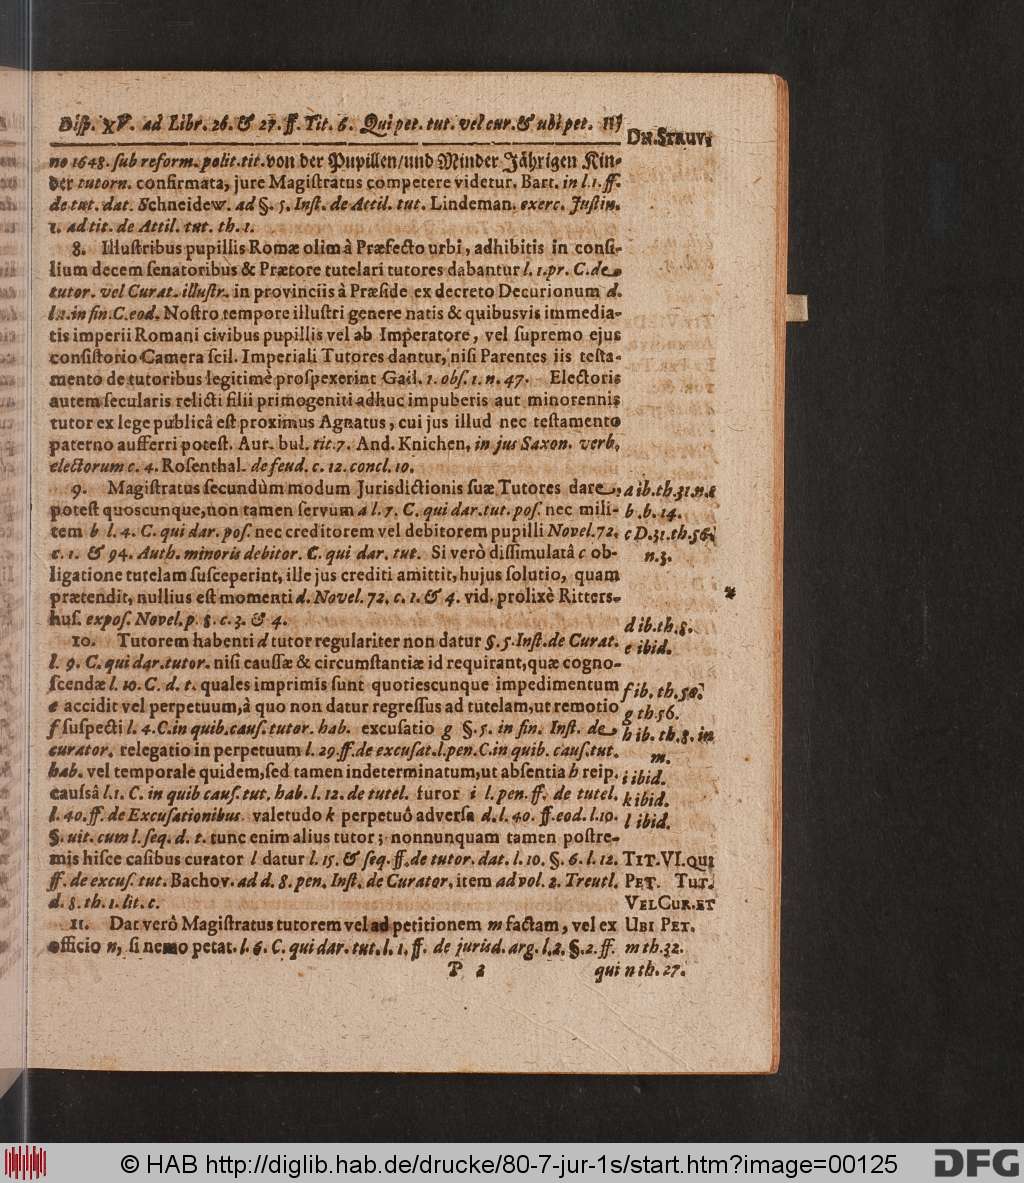 Disp. XV. ad Libr. 26. & 27. ff. Tit. 6. Qui pet. tut. vel cur. & ubi pet.
DN. STRUV:
no 1648. sub reform. polit. tit. von der Pupillen/und Minder Jährigen Kin-
der tutorn. confirmata, jure Magistratus competere videtur. Bart. in l. 1. ff.
de tut. dat. Schneidew. ad §. 5. Inst. de Attil. tut. Lindeman. exerc. Justin.
1. ad tit. de Attil. tut. th. 1.
8. Illustribus pupillis Romæ olim à Præfecto urbi, adhibitis in consi-
lium decem senatoribus & Prætore tutelari tutores dabantur l. 1. pr. C. de
tutor. vel Curat. illustr. in provinciis à Præside ex decreto Decurionum d.
l. 2. in fin. C. eod. Nostro tempore illustri genere natis & quibusvis immedia-
tis imperii Romani civibus pupillis vel ab Imperatore, vel supremo ejus
consistorio Camera scil. Imperiali Tutores dantur, nisi Parentes iis testa-
mento de tutoribus legitimè prospexerint Gail. 1. obs. 1. n. 47. Electoris
autem secularis relicti filii primogeniti adhuc impuberis aut minorennis
tutor ex lege publicâ est proximus Agnatus, cui jus illud nec testamento
paterno aufferri potest. Aur. bul. tit. 7. And. Knichen. in jus Saxon. verb.
electorum c. 4. Rosenthal. de feud. c. 12. concl. 10.
9. Magistratus secundùm modum Jurisdictionis suæ Tutores dare
a ib. th. 31. n. 1
potest quoscunque, non tamen servum a l. 7. C. qui dar. tut. pos. nec mili-
b . b. 14.
tem b l. 4. C. qui dar. pos. nec creditorem vel debitorem pupilli Novel. 72.
c D. 31. th. 56.
c. 1. & 94. Auth. minoris debitor. C. qui dar. tut. Si verò dissimulatâ c ob-
n. 3.
ligatione tutelam susceperint, ille jus crediti amittit, hujus solutio, quam
prætendit, nullius est momenti d. Novel. 72. c. 1. & 4. vid. prolixè Ritters-
hus. expos. Novel. p. 8. c. 3. & 4.
d ib. th. 8.
10. Tutorem habenti d tutor regulariter non datur §. 5. Inst. de Curat.
e ibid.
l. 9. C. qui dar. tutor. nisi caussæ & circumstantiæ id requirant, quæ cogno-
scendæ l. 10. C. d. t. quales imprimis sunt quotiescunque impedimentum
f ib. th. 58.
e accidit vel perpetuum, à quo non datur regressus ad tutelam, ut remotio
g th. 56.
f suspecti l. 4. C. in quib. caus. tutor. hab. excusatio g §. 5. in fin. Inst. de
h ib. th. 8. in
curator. relegatio in perpetuum l. 29. ff. de excusat. l. pen. C. in quib. caus. tut.
m.
hab. vel temporale quidem, sed tamen indeterminatum, ut absentia h reip.
i ibid.
causâ l. 1. C. in quib caus. tut. hab. l. 12. de tutel. furor i l. pen. ff. de tutel.
k ibid.
l. 40. ff. de Excusationibus. valetudo k perpetuò adversa d. l. 40. ff. eod. l. 10.
l ibid.
§. ult. cum l. seq. d. t. tunc enim alius tutor; nonnunquam tamen postre-
mis hisce casibus curator l datur l. 15. & seq. ff. de tutor. dat. l. 10. §. 6. l. 12.
TIT. VI. QUI
ff. de excus. tut. Bachov. ad d. §. pen. Inst. de Curator. item ad vol. 2. Treutl.
PET. TUT.
d. 8. th. 1. lit. c.
VEL CUR. ET
11. Dat verò Magistratus tutorem vel ad petitionem m factam, vel ex
UBI PET.
officio n, si nemo petat. l. 6. C. qui dar. tut. l. 1. ff. de jurisd. arg. l. 2. §. 2. ff.
m th. 32.
P 2
qui
n th. 27.
© HAB http://diglib.hab.de/drucke/80-7-jur-1s/start.htm?image=00125
DFG